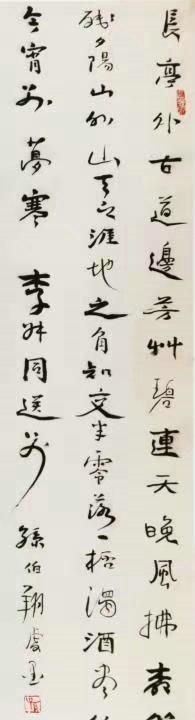 長亭外古道邊芳艸碧連天晚風拂
残夕陽山外山天之涯地之角知交半零落一桮濁酒
今宵別夢寒 李叔同送別 孫伯翔